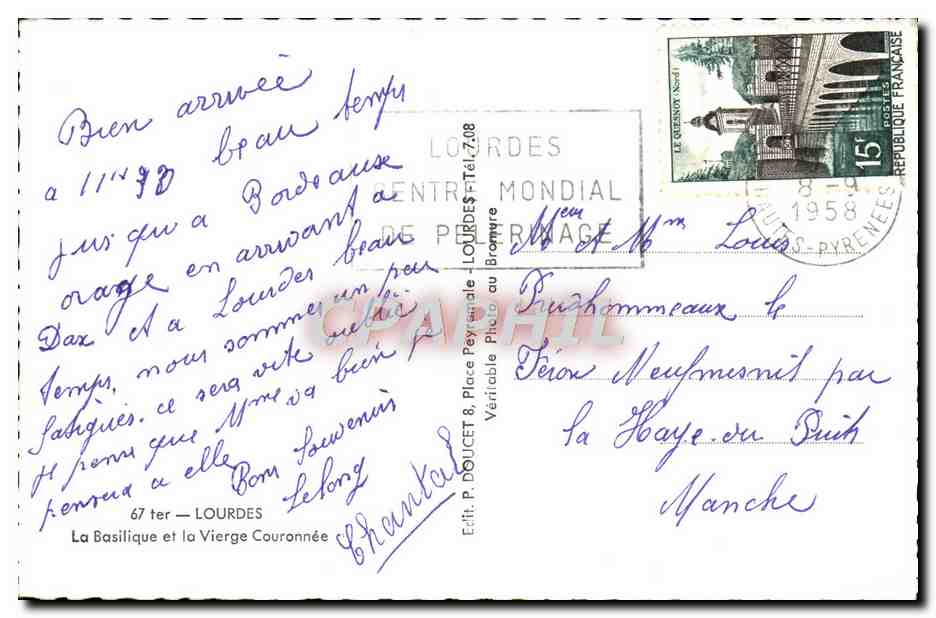 Bien arrivée
a 11H30 beau temps
jusqu'a Bordeause
orage en arrivant a
Dax et a Lourdes beau
temps, nous sommes un peu
fatigués. ce sera vite oublié
je pense que Mme va bien je
pensera a elle
Bons Souvenirs
Lelong
Chantal
67 ter — LOURDES
La Basilique et la Vierge Couronnée
Edit. P. DOUCET 8, Place Peyramale - LOURDES - Tél. 7.08
Véritable Photo au Bromure
LOURDES
CENTRE MONDIAL
DE PELERINAGE
LE QUESNOY (Nord)
15F
POSTES
REPUBLIQUE FRANÇAISE
8-9
1958
HAUTES-PYRENEES
Meur et Mme Louis
Prudhommeaux le
Féron Neufmesnil par
la Haye-du Puits
Manche
CPAPHIL